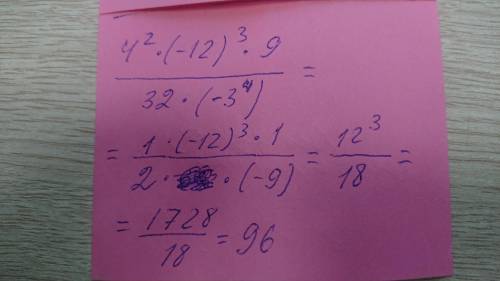 4² · (-12)³ · 9
32 · (-3⁴)
=
= 1 · (-12)³ · 1
2 · · (-9)
= 12³
18
=
= 1728
18
= 96